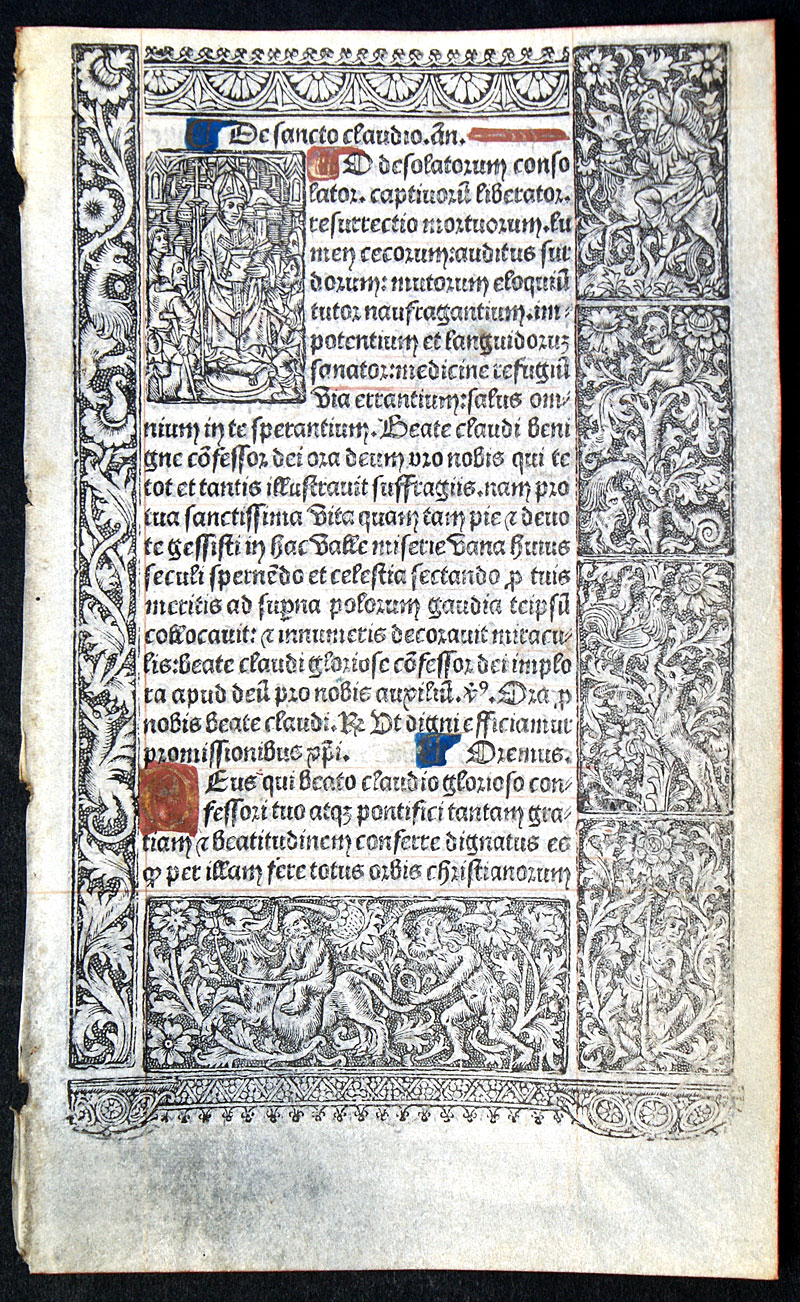 De sancto claudio. añ.
O desolatorum conso
lator. captiuorū liberator.
resurrectio mortuorum. lu
men cecorum: auditus sur
dorum: mutorum eloquiū
tutor naufragantium. im-
potentium et languidoruꝫ
sanator: medicine refugiū
via errantium: salus om-
nium in te sperantium. Beate claudi beni
gne cōfessor dei ora deum pro nobis qui te
tot et tantis illustrauit suffragiis. nam pro
tua sanctissima vita quam tam pie ⁊ deuo
te gessisti in hac valle miserie vana huius
seculi spernēdo et celestia sectando ꝑ tuis
meritis ad suꝑna polorum gaudia teipsū
collocauit: ⁊ innumeris decorauit miracu-
lis: beate claudi gloriose cōfessor dei implo
ra apud deū pro nobis auxiliū. ℣. Ora ꝓ
nobis beate claudi. ℞ Ut digni efficiamur
promissionibus xp̄i. Oremus.
Eus qui beato claudio glorioso con-
fessori tuo atqꝫ pontifici tantam gra-
tiam ⁊ beatitudinem conferre dignatus es
ꝙ per illam fere totus orbis christianorum